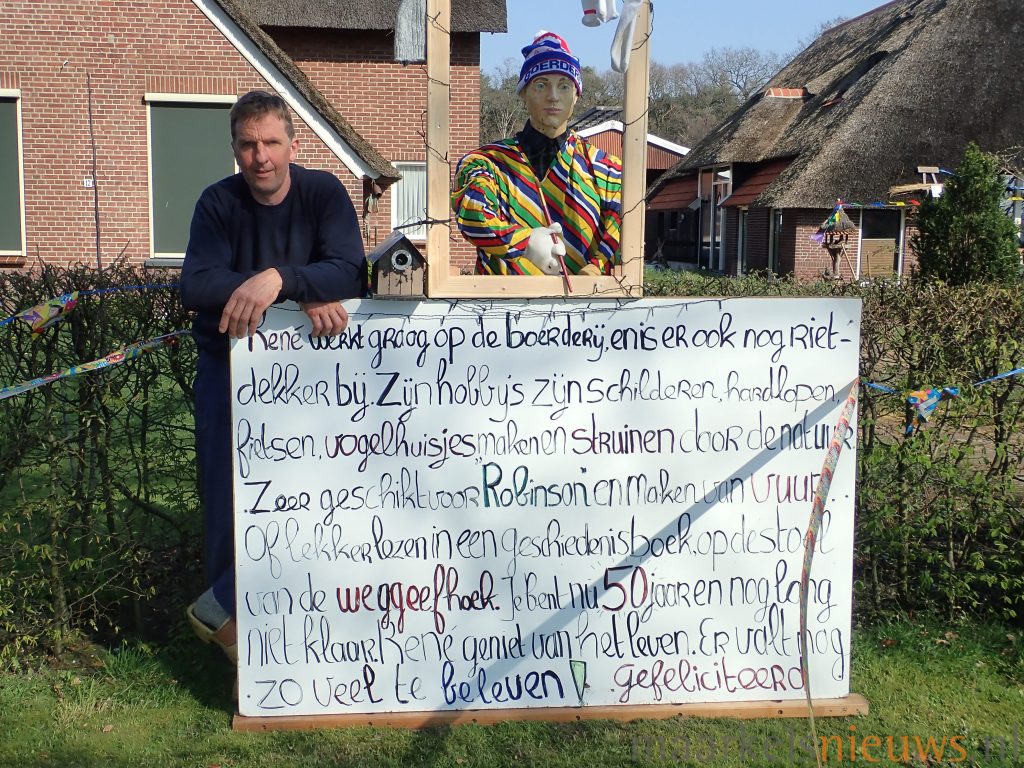 BOERDERIJ
René werkt graag op de boerderij, en is er ook nog riet-
dekker bij. Zijn hobby's zijn schilderen, hardlopen,
fietsen, vogelhuisjes maken en struinen door de natuur
Zeer geschikt voor "Robinson" en maken van vuur..
Of lekker lezen in een geschiedenisboek, op de stoel
van de weggeefhoek. Je bent nu 50 jaar en nog lang
niet klaar. René geniet van het leven. Er valt nog
zo veel te beleven! gefeliciteerd
maarkelsnieuws.nl